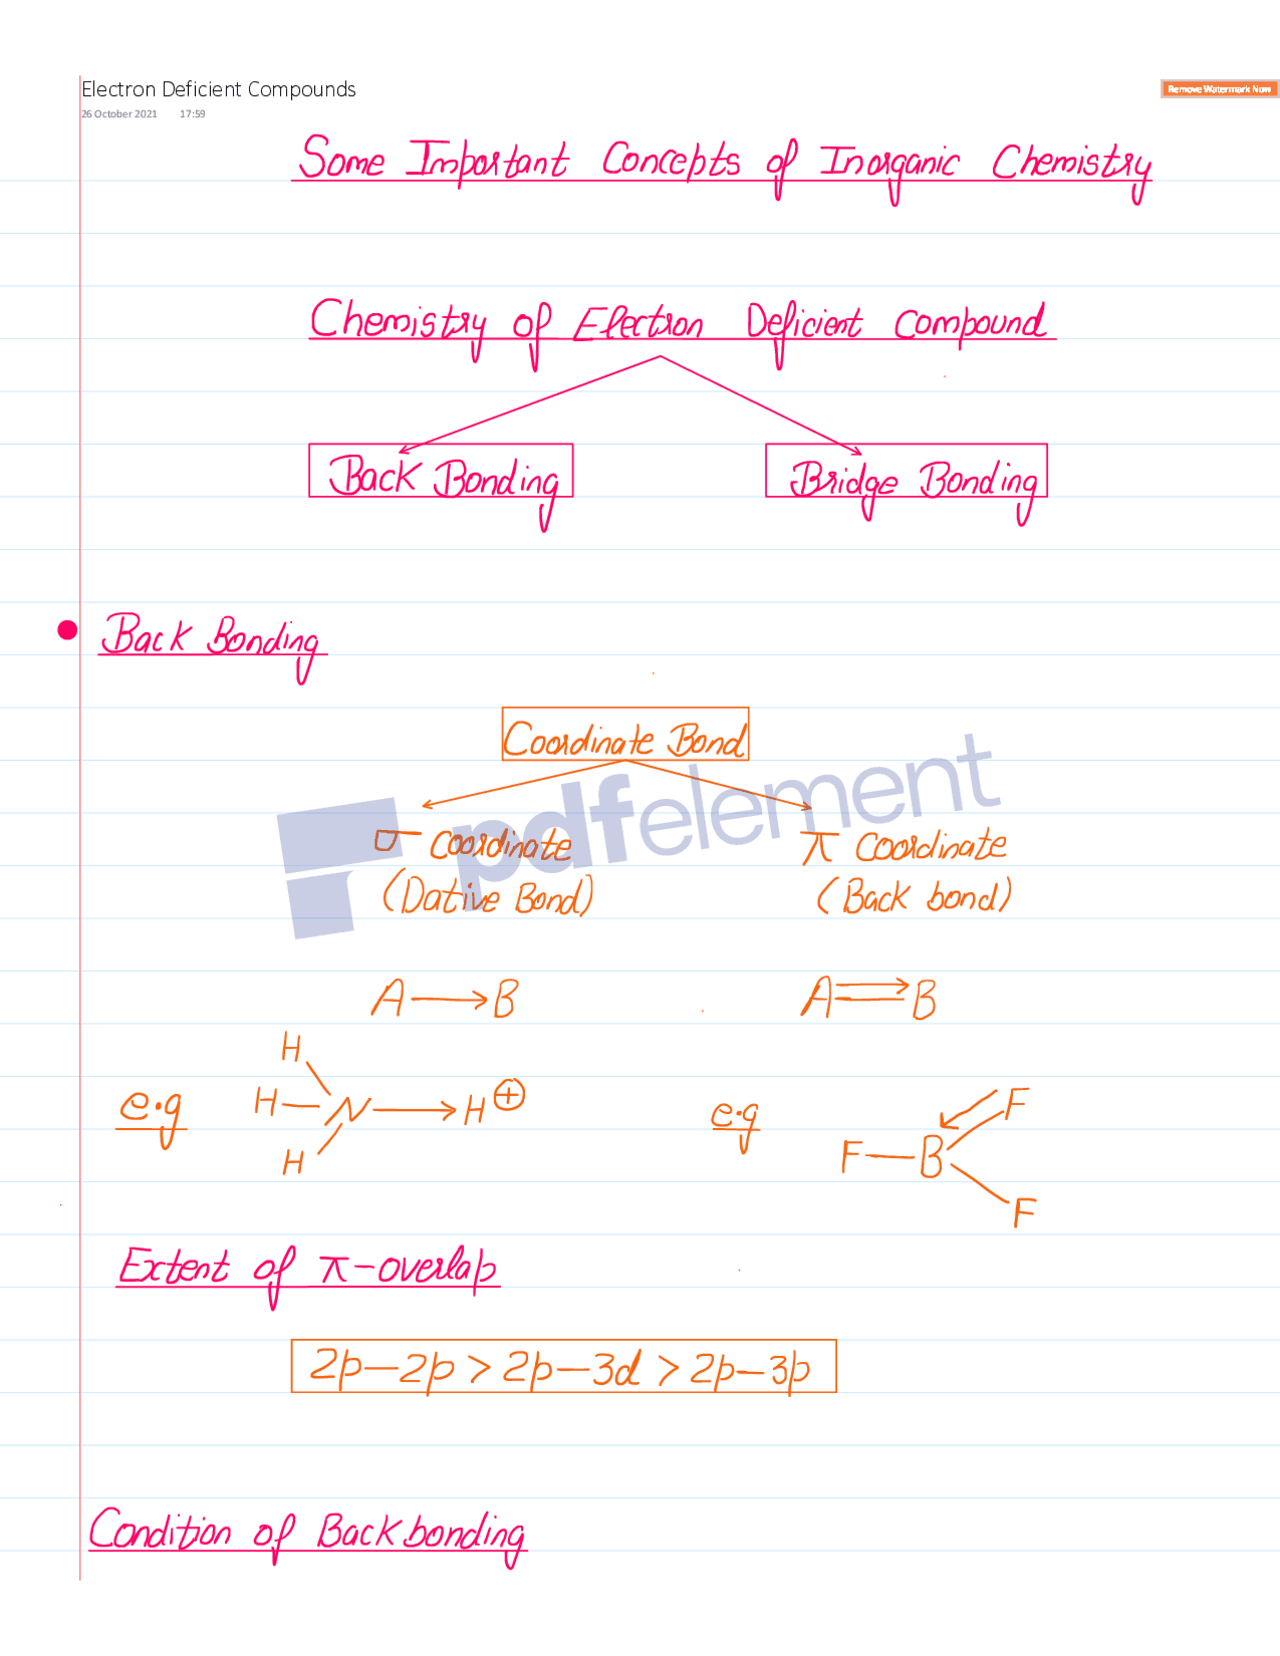 Electron Deficient Compounds
Remove Watermark Now
26 October 2021 17:59
Some Important Concepts of Inorganic Chemistry
Chemistry of Electron Deficient Compound
Back Bonding Bridge Bonding
Back Bonding
Coordinate Bond
pdfelement
σ coordinate π coordinate
(Dative Bond) (Back bond)
A⟶B A⇒B
H
e.g H—N⟶H⊕ e.g F
H F—B
F
Extent of π-overlap
2p–2p > 2p–3d > 2p–3p
Condition of Backbonding